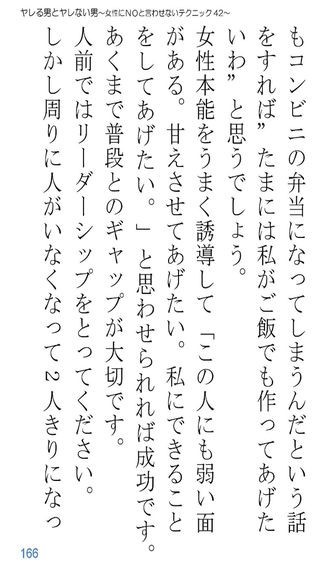 ヤレる男とヤレない男～女性にNOと言わせないテクニック42～
もコンビニの弁当になってしまうんだという話
をすれば”たまには私がご飯でも作ってあげた
いわ”と思うでしょう。
女性本能をうまく誘導して「この人にも弱い面
がある。甘えさせてあげたい。私にできること
をしてあげたい。」と思わせられれば成功です。
あくまで普段とのギャップが大切です。
人前ではリーダーシップをとってください。
しかし周りに人がいなくなって2人きりになっ
166